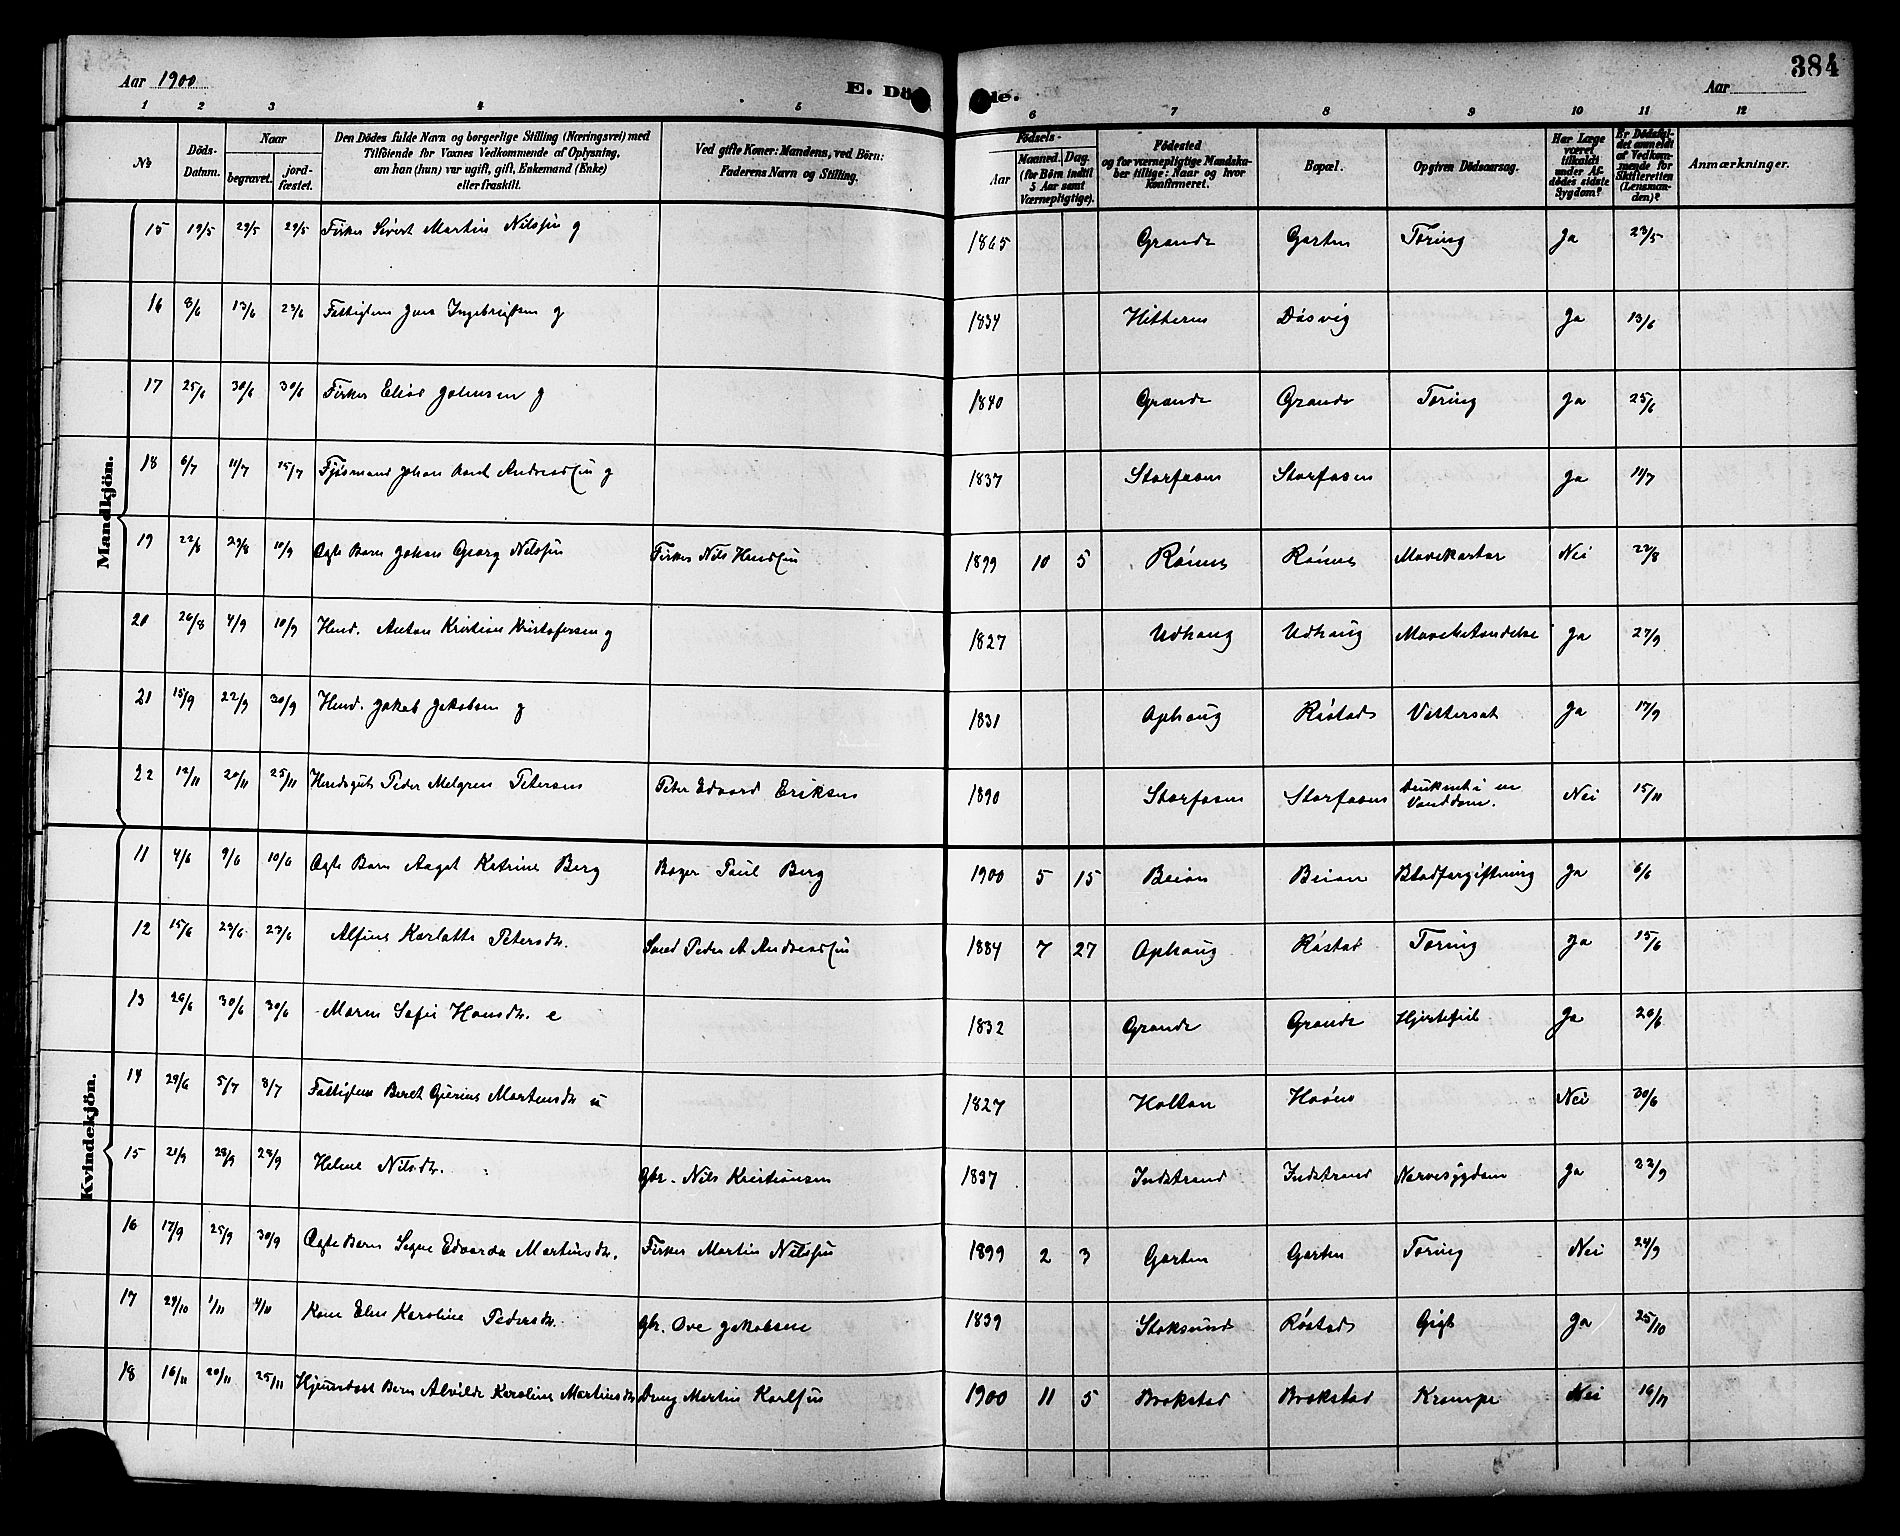 Aar 1900
E. Dö
de.
Aar
384
1 2 3 4 5 6 7 8 9 10 11 12
No
Döds-Datum.
Naar
begravet.
jordfæstet.
Den Dödes fulde Navn og borgerlige Stilling (Næringsvei) med Tilföiende for Voxnes Vedkommende af Oplysning, om han (hun) var ugift, gift, Enkemand (Enke) eller fraskilt.
Ved gifte Koner: Mandens, ved Börn: Faderens Navn og Stilling.
Födsels-
Aar
Maaned. Dag.
(for Börn indtil 5 Aar samt Værnepligtige).
Födested og for værnepligtige Mandskaber tillige: Naar og hvor Konfirmeret.
Bopæl.
Opgiven Dödsaarsag.
Har Læge været tilkaldt under Afdödes sidste Sygdom?
Er Dödsfaldet anmeldt af Vedkommende for Skifteretten (Lensmanden)?
Anmærkninger.
Mandkjön.
15 19/5 29/5 29/5 Fisker Sivert Martin Nilssen g 1865 Grande Garten Tæring Ja 23/5
16 8/6 13/6 23/6 Fattiglem Jens Ingebrigtsen g 1834 Hitteren Dösvig Ja 13/6
17 25/6 30/6 30/6 Fisker Elias Johnsen g 1840 Grande Grande Tæring Ja 25/6
18 6/7 11/7 15/7 Fjøsmand Johan Andreassen g 1837 Storfosen Storfosen Ja 11/7
19 22/8 29/8 10/9 Ægte Barn Johan Georg Nilssen Fisker Nils 1899 10 5 Rönes Rönes Mavekatar Nei 22/8
20 26/8 4/9 10/9 Husd. Anton Kristian Kristofersen g 1827 Udhaug Udhaug Mavebetændelse Ja 27/9
21 15/9 22/9 30/9 Husd. Jakob Jakobsen g 1831 Ophaug Röstad Vattersot Ja 17/9
22 12/11 20/11 25/11 Peder Melgren Petersen Peter Edvard Eriksen 1890 Storfosen Storfosen druknet i en Vanddam. Nei 15/11
Kvindekjön.
11 4/6 9/6 10/6 Ægte Barn Aagot Katrine Berg Bager Paul Berg 1900 5 15 Beian Beian Blodforgiftning Ja 6/6
12 15/6 23/6 23/6 Alfine Karlotte Petersdtr. Peder A. Andreassen 1884 7 27 Ophaug Röstad Tæring Ja 15/6
13 26/6 30/6 30/6 Maren Sofie Hansdtr. e 1832 Grande Grande Hjertefeil Ja 26/6
14 29/6 5/7 8/7 Fattiglem Beret Martensdtr u 1827 Holtan Nei 30/6
15 21/9 28/9 28/9 Helene Nilsdtr. Gbr. Nils Kristiansen 1897 Indstrand Indstrand Nervesygdom Ja 22/9
16 17/9 25/9 30/9 Ægte Barn Signe Edvarda Martinsdtr. Fisker Martin Nilssen 1899 2 3 Garten Garten Tæring Nei 24/9
17 24/10 1/11 4/11 Kone Elen Karoline Pedersdtr. Gbr. Ove Jakobsen 1839 Stoksund Röstad Gigt Ja 25/10
18 16/11 20/11 25/11 Hjemdøbt Barn Alvilde Karoline Martinsdtr Martin Karlsen 1900 11 5 Brekstad Brekstad Krampe Nei 16/11